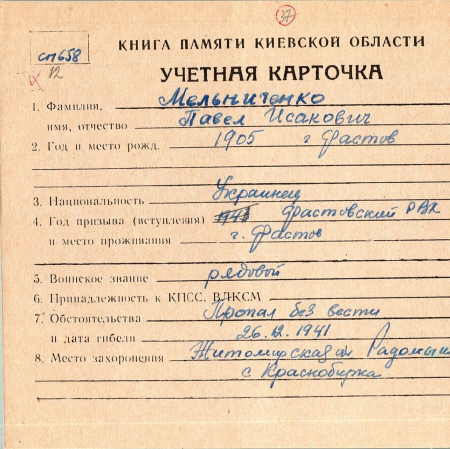 37
сп658
12
КНИГА ПАМЯТИ КИЕВСКОЙ ОБЛАСТИ
УЧЕТНАЯ КАРТОЧКА
1. Фамилия, Мельниченко
имя, отчество Павел Исакович
2. Год и место рожд. 1905 г Фастов
3. Национальность Украинец
4. Год призыва (вступления) Фастовский РВК
и место проживания г. Фастов
5. Воинское звание рядовой
6. Принадлежность к КПСС, ВЛКСМ
7. Обстоятельства Пропал без вести
и дата гибели 26.12.1941
8. Место захоронения Житомирская Радомыш
с Краснобирка